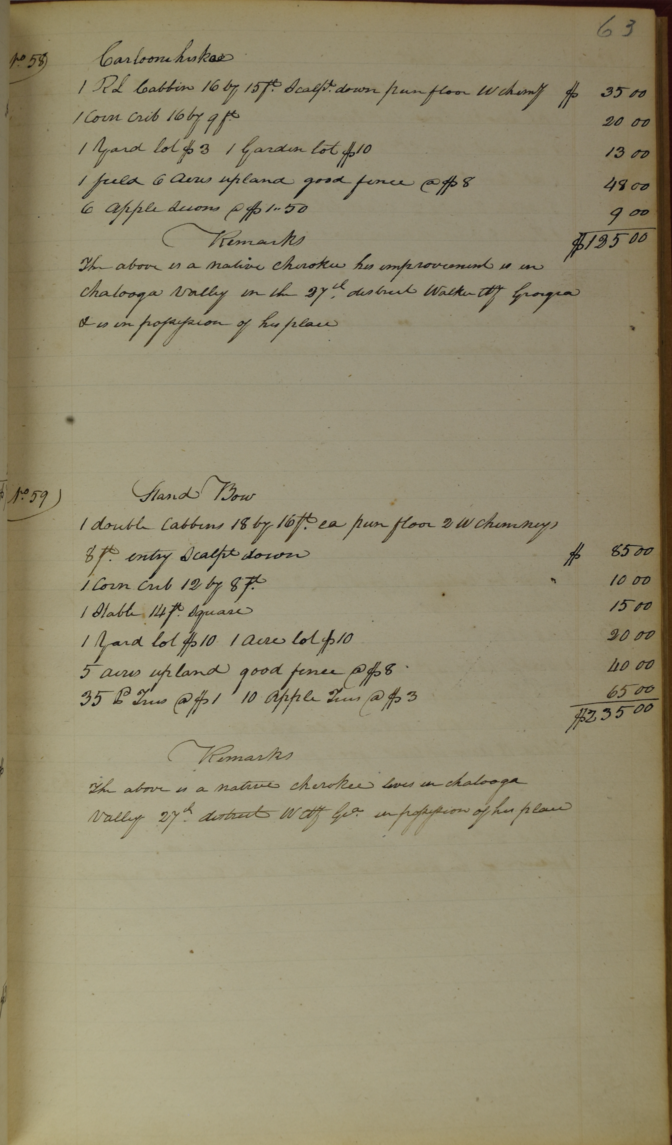 63
No 58) Cartoonehiskee
1 RL Cabbin 16 by 15ft. Scalpt. down pun floor W chimy $ 35 00
1 Corn Crib 16 by 9 ft 20 00
1 Yard lot $3 1 Garden lot $10 13 00
1 field 6 acres upland good fence @ $8 48 00
6 apple scions @ $1-50 9 00
Remarks $125 00
The above is a native cherokee his improvement is in
chatooga Vally in the 27th. district Walker Cty Georgia
& is in possession of his place
No 59) Stand Bow
1 double Cabbins 18 by 16ft. ea pun floor 2 W chimneys
8ft. entry Scalpt down $ 85 00
1 Corn crib 12 by 8ft. 10 00
1 Stable 14ft Square 15 00
1 Yard lot $10 1 acre lot $10 20 00
5 acres upland good fence @ $8 40 00
35 P Trees @ $1 10 Apple Trees @ $3 65 00
$235 00
Remarks
The above is a native cherokee lives in chatooga
Valley 27th district W Cty Ga. in possession of his place